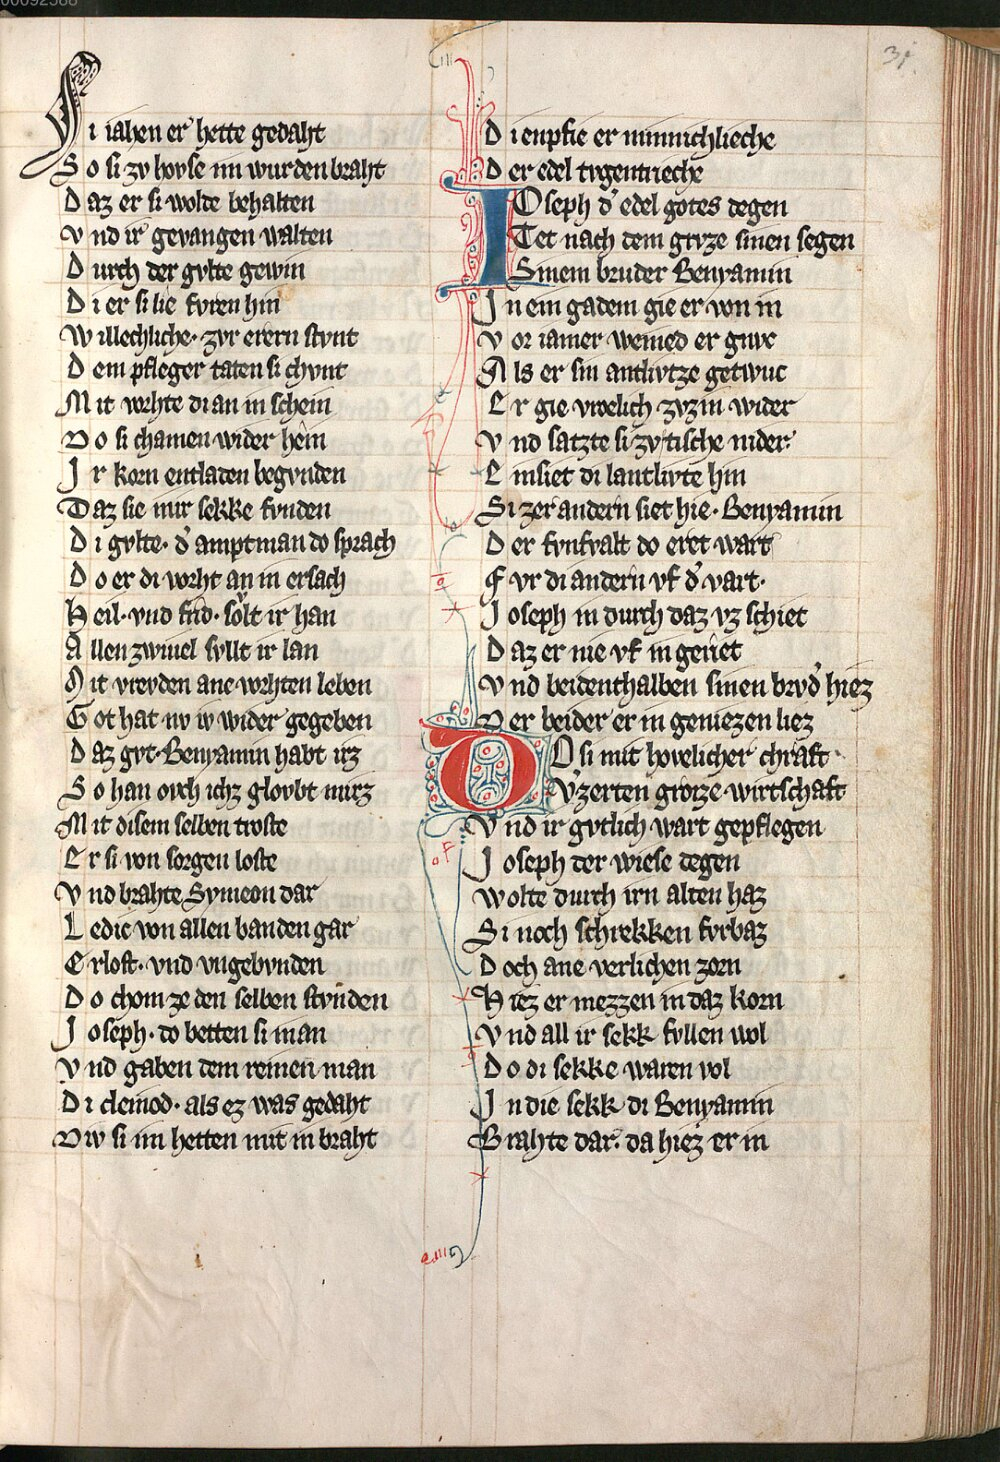 00092588
31.
Si iahen er hette gedaht
So si zv hovse im wurden braht
Daz er si wolde behalten
Vnd ir gevangen walten
Durch der gvlte gewin
Di er si lie fvren hin
Willechliche· zvr erern stvnt
Dem pfleger taten si chvnt
Mit vorhte di an in schein
Do si chamen wider hein
Ir korn entladen begvnden
Daz sie mir sekke fvnden
Di gvlte· d' amptman do sprach
Do er di vorht an in ersach
Heil· vnd frid· sölt ir han
Allen zwiuel svllt ir lan
Mit vrevden ane vorhten leben
Got hat nv iv wider gegeben
Daz gvt· Benyamin habt irz
So han ovch ichz glovbt mirz
Mit disem selben troste
Er si von sorgen loste
Vnd brahte Symeon dar
Ledic von allen banden gar
Erlost· vnd vngebvnden
Do chom ze den selben stvnden
Joseph· do betten si man
Vnd gaben dem reinen man
Di cleinod· als ez was gedaht
Div si im hetten mit in braht
Di enpfie er minnichlieche
Der edel tvgentrieche
IOseph d' edel gotes degen
Tet nach dem grvze sinen segen
Sinem bruder Benyamin
In ein gadem gie er von in
Vor iamer weined er gnvc
Als er sin antlivtze getwuc
Er gie vroelich zvzin wider
Vnd satzte si zv tische nider
Einsiet di lantlivte hin
Si zer andern siet hie· Benyamin
Der fvnfvalt do eret wart
Fvr di andern vf d' vart·
Joseph in durch daz vz schiet
Daz er nie vf in geriet
Vnd beidenthalben sinen brvd' hiez
Der beider er in geniezen liez
DO si mit hovelicher chraft
V'zerten groze wirtschaft
Vnd ir gvtlich wart gepflegen
Joseph der wiese degen
Wolte durch irn alten haz
Si noch schrekken fvrbaz
Doch ane verlichen zorn
Hiez er mezzen in daz korn
Vnd all ir sekk fvllen wol
Do di sekke waren vol
In die sekk di Benyamin
Brahte dar· da hiez er in